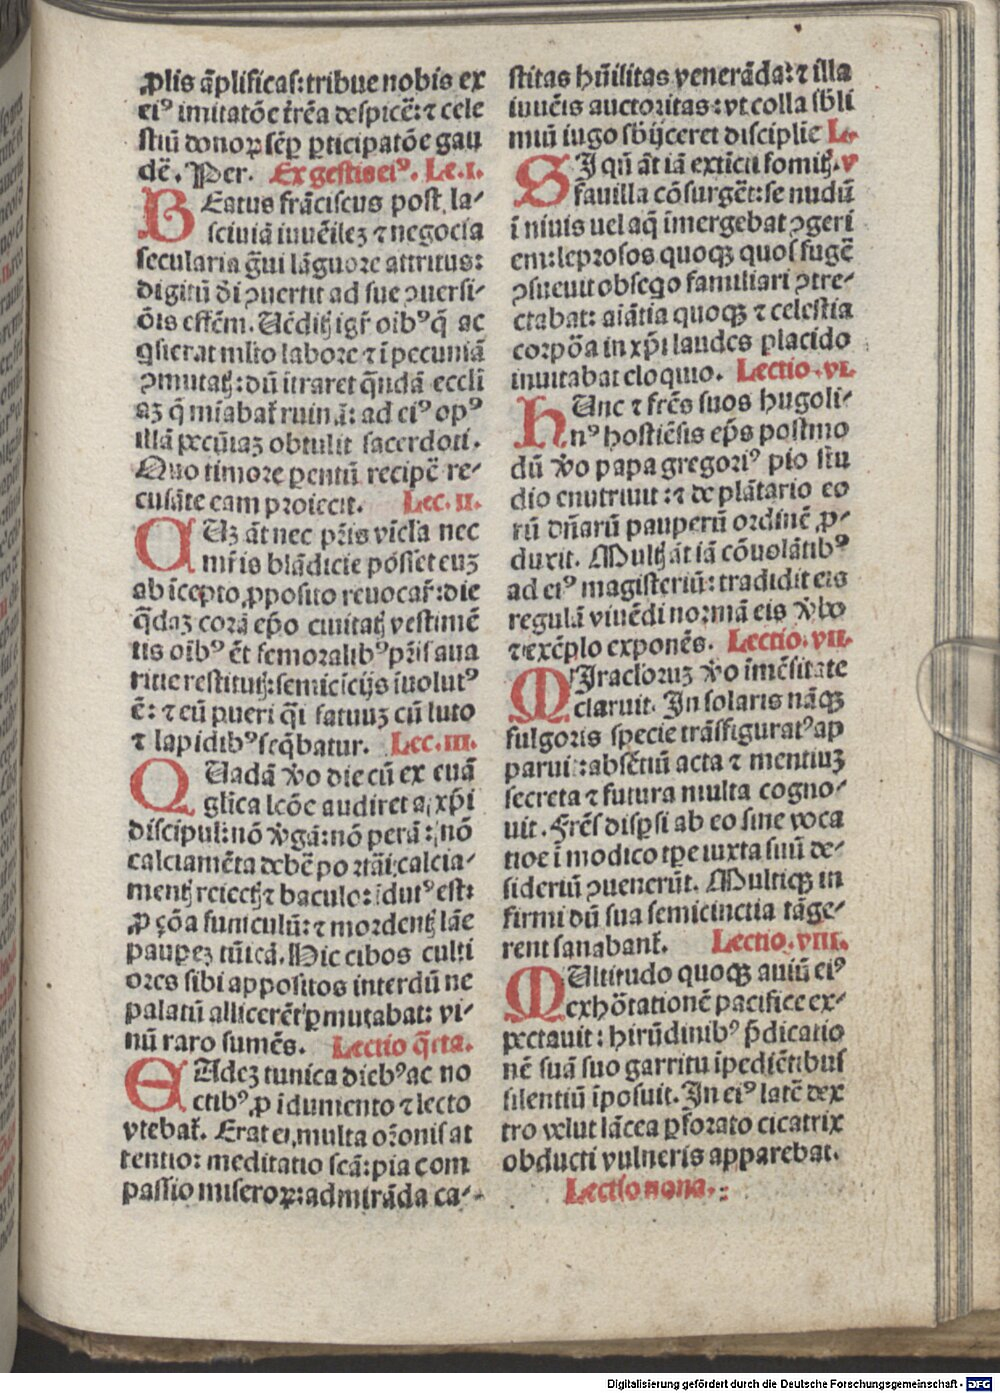 ꝓlis ãplificas: tribue nobis ex
ei⁹ imitatõe t̃rẽa despicẽ: ⁊ cele
stiũ donoꝝ sẽꝑ ꝑticipatõe gau
dẽ. Per. Ex gestis ei⁹. Le. I.
BEatus frãciscus post la-
sciuiã iuuẽilez ⁊ negocia
secularia g̃ui lãguore attritus:
digitũ dei ꝯuertit ad sue ꝯuersi-
õis effẽm. Uẽditꝭ igr̃ oib⁹ q̃ ac
q̃sierat mlto labore ⁊ ĩ pecuniã
ꝯmutatꝭ: dũ ĩtraret q̃ndã eccli
az q̃ mĩabat̃ ruinã: ad ei⁹ op⁹
illã pecũiaz obtulit sacerdoti.
Quo timore parentũ recipẽ re-
cusãte eam proiecit. Lec. II.
CUz ãt nec pr̃is vĩcla nec
mr̃is blãdicie possẽt euz
ab ĩcepto ꝓposito reuocar̃: die
q̃daz corã ep̃o ciuitatꝭ vestimẽ
tis oĩb⁹ ẽt femoralib⁹ pr̃is aua
ritie restitutꝭ: semicicijs ĩuolut⁹
ẽ: ⁊ cũ pueri q̃i fatuuz cũ luto
⁊ lapidib⁹ seq̃batur. Lec. III.
QUadã ꝟo die cũ ex euã
glica lcõe audiret a xp̃i
discipul: nõ ꝟgã: nõ perã: nõ
calciamẽta debẽ portãi: calcia-
mentꝭ reiectꝭ ⁊ baculo: ĩdut⁹ est:
ꝓ çõa funiculũ: ⁊ mordentꝭ lãe
paupez tũicã. Hic cibos culti
ores sibi appositos interdũ ne
palatũ allicerẽt ꝑmutabat: vi-
nũ raro sumẽs. Lectio q̃rta.
EAdez tunica dieb⁹ ac no
ctib⁹ ꝓ ĩdumento ⁊ lecto
vtebat̃. Erat ei multa or̃onis at
tentio: meditatio scã: pia com
passio miseroꝝ: admirãda ca-
stitas hũilitas venerãda: ⁊ illa
iuuẽis auctoritas: vt colla sb̃li
miũ iugo sb̃ijceret discipline L.
SI qñ ãt iã extĩcti fomitꝭ V
fauilla cõsurgẽt: se nudũ
ĩ niuis uel aq̃ ĩmergebat ꝯgeri
em: leprosos quoqꝫ quos fugẽ
ꝯsueuit obseq̃o familiari ꝯtre-
ctabat: aiãtia quoqꝫ ⁊ celestia
corpõa in xp̃i laudes placido
inuitabat eloquio. Lectio. VI.
HUnc ⁊ fr̃es suos hugoli-
n⁹ hostiẽsis ep̃s postmo
dũ ꝟo papa gregori⁹ pio stu
dio enutriuit: ⁊ de plãtario eo
rũ dñarũ pauperũ ordinẽ ꝓ-
duxit. Multꝭ ãt iã cõuolãtib⁹
ad ei⁹ magisteriũ: tradidit eis
regulã viuẽdi normã eis ꝟbo
⁊ exẽplo exponẽs. Lectio. VII.
MIracloruz ꝟo ĩmẽsitate
claruit. In solaris nãqꝫ
fulgoris specie trãsfigurat⁹ ap
paruit: absẽtiũ acta ⁊ mentiuz
secreta ⁊ futura multa cogno-
uit. Fr̃es disꝑsi ab eo sine voca
tioe ĩ modico tꝑe iuxta suũ de-
sideriũ ꝯuenerũt. Multiqꝫ in
firmi dũ sua semicinctia tãge-
rent sanabant̃. Lectio. VIII.
MUltitudo quoqꝫ auiũ ei⁹
exhõtationẽ pacifice ex-
pectauit: hirũdinib⁹ p̃dicatio
nẽ suã suo garritu ĩpediẽtibus
silentiũ ĩposuit. In ei⁹ latẽ dex
tro velut lãcea ꝑforato cicatrix
obducti vulneris apparebat.
Lectio nona.
Digitalisierung gefördert durch die Deutsche Forschungsgemeinschaft - DFG